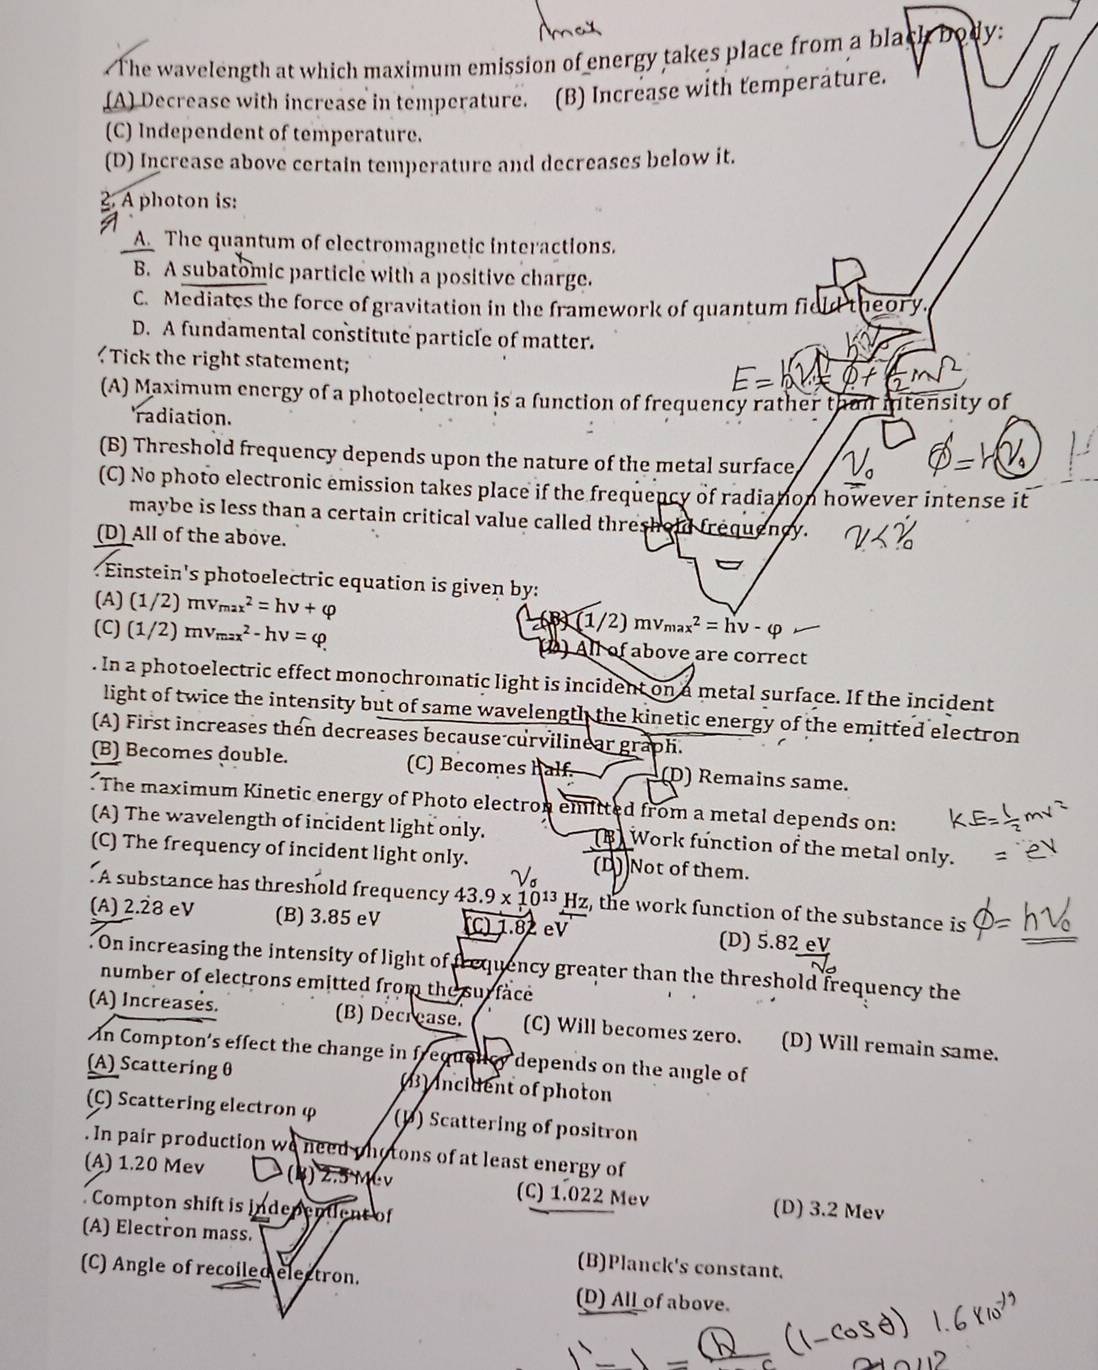 λmax
The wavelength at which maximum emission of energy takes place from a black body:
(A) Decrease with increase in temperature. (B) Increase with temperature.
(C) Independent of temperature.
(D) Increase above certain temperature and decreases below it.
2. A photon is:
A. The quantum of electromagnetic interactions.
B. A subatomic particle with a positive charge.
C. Mediates the force of gravitation in the framework of quantum field theory.
D. A fundamental constitute particle of matter.
Tick the right statement;
(A) Maximum energy of a photoelectron is a function of frequency rather than intensity of
radiation.
(B) Threshold frequency depends upon the nature of the metal surface
ν₀ ϕ=hν₀
(C) No photo electronic emission takes place if the frequency of radiation however intense it
maybe is less than a certain critical value called threshold frequency.
ν<ν₀
(D) All of the above.
Einstein's photoelectric equation is given by:
(A) (1/2) mvmax² = hν + φ (B) (1/2) mvmax² = hν - φ
(C) (1/2) mvmax² - hν = φ (D) All of above are correct
. In a photoelectric effect monochromatic light is incident on a metal surface. If the incident
light of twice the intensity but of same wavelength the kinetic energy of the emitted electron
(A) First increases then decreases because curvilinear graph.
(B) Becomes double. (C) Becomes half. (D) Remains same.
. The maximum Kinetic energy of Photo electron emitted from a metal depends on:
K.E=½mv²
= eV
(A) The wavelength of incident light only. (B) Work function of the metal only.
(C) The frequency of incident light only. (D) Not of them.
ν₀
. A substance has threshold frequency 43.9 x 10¹³ Hz, the work function of the substance is ϕ= hν₀
(A) 2.28 eV (B) 3.85 eV (C) 1.82 eV (D) 5.82 eV
. On increasing the intensity of light of frequency greater than the threshold frequency the
number of electrons emitted from the surface
(A) Increases. (B) Decrease. (C) Will becomes zero. (D) Will remain same.
In Compton's effect the change in frequency depends on the angle of
(A) Scattering θ (B) Incident of photon
(C) Scattering electron φ (D) Scattering of positron
. In pair production we need photons of at least energy of
(A) 1.20 Mev (B) 2.5 Mev (C) 1.022 Mev (D) 3.2 Mev
. Compton shift is independent of
(A) Electron mass. (B)Planck's constant.
(C) Angle of recoiled electron. (D) All of above.
(1-cosθ) 1.6x10⁻¹⁹